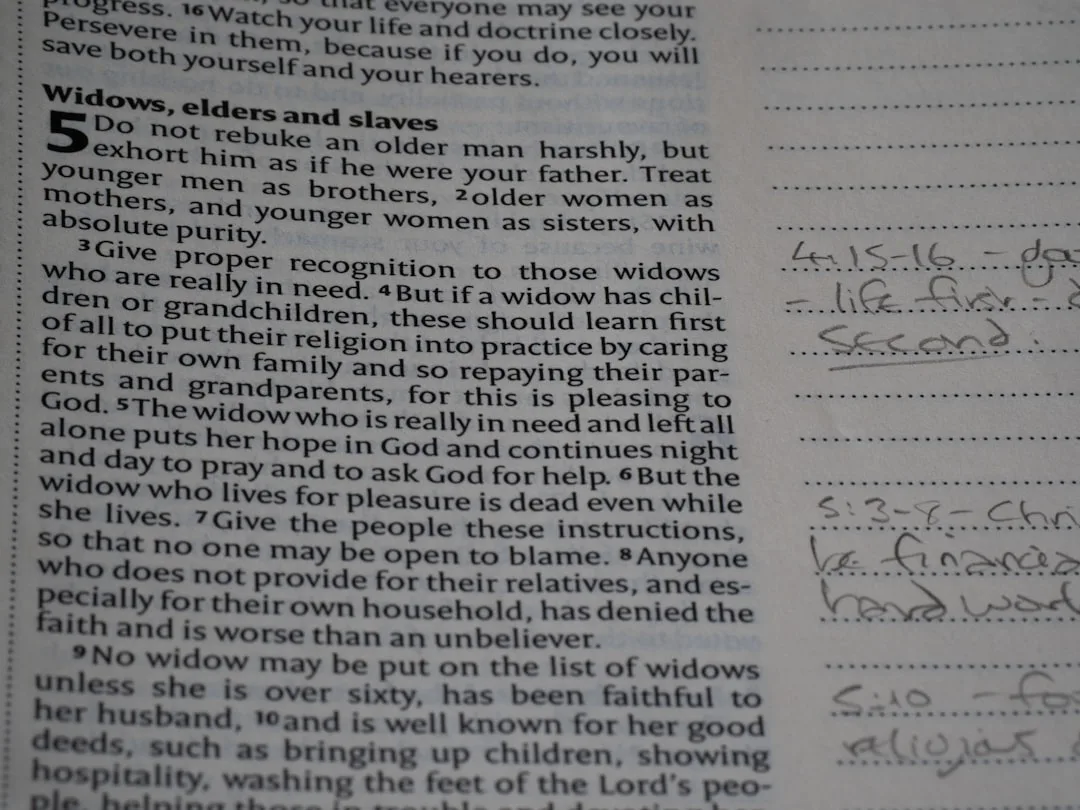 progress. 16 Watch your life and doctrine closely.
so that everyone may see your
Persevere in them, because if you do, you will
save both yourself and your hearers.
Widows, elders and slaves
5 Do not rebuke an older man harshly, but
exhort him as if he were your father. Treat
younger men as brothers, 2 older women as
mothers, and younger women as sisters, with
absolute purity.
3 Give proper recognition to those widows
who are really in need. 4 But if a widow has chil-
dren or grandchildren, these should learn first
of all to put their religion into practice by caring
for their own family and so repaying their par-
ents and grandparents, for this is pleasing to
God. 5 The widow who is really in need and left all
alone puts her hope in God and continues night
and day to pray and to ask God for help. 6 But the
widow who lives for pleasure is dead even while
she lives. 7 Give the people these instructions,
so that no one may be open to blame. 8 Anyone
who does not provide for their relatives, and es-
pecially for their own household, has denied the
faith and is worse than an unbeliever.
9 No widow may be put on the list of widows
unless she is over sixty, has been faithful to
her husband, 10 and is well known for her good
deeds, such as bringing up children, showing
hospitality, washing the feet of the Lord's peo-
ple, helping those in trouble and devoting her
4:15-16 -
- life first -
second.
5:3-8 - Chri
be financia
hard work
5:10 -
religious